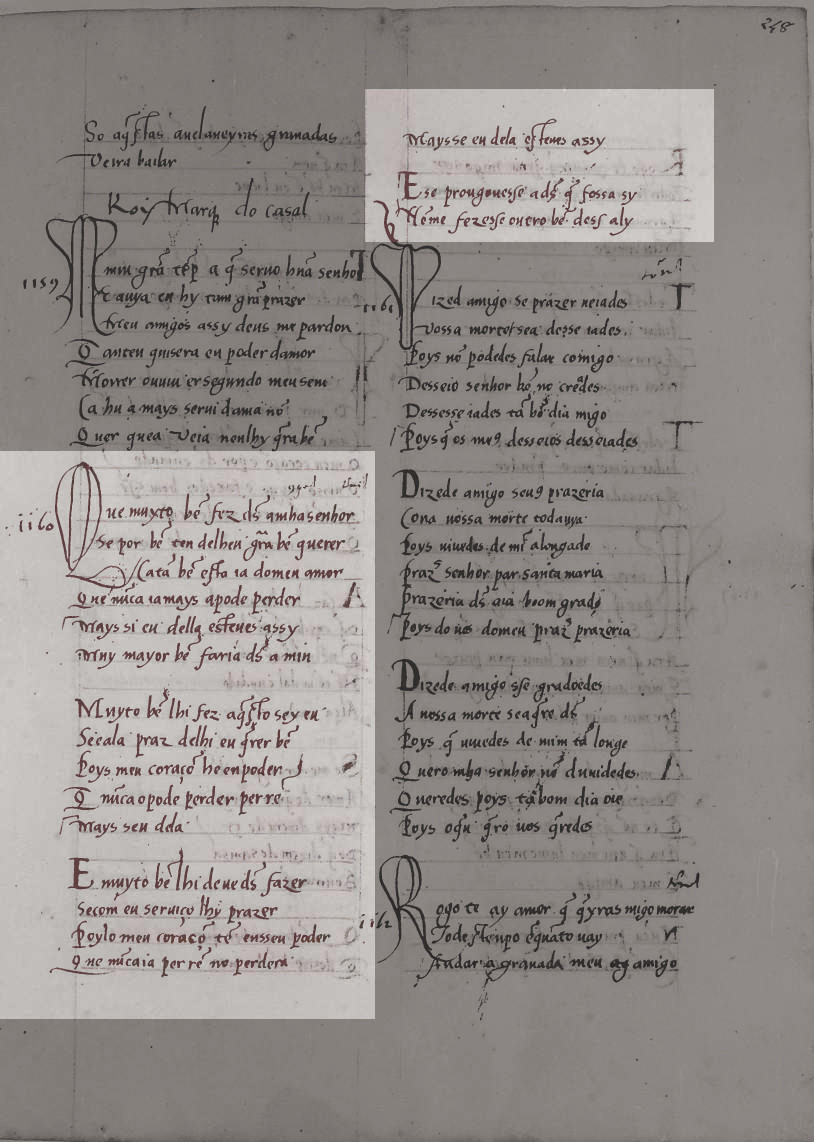 248
So aq̃stas avelaneyras granadas
Veira bailar
Roy Marq̃ do casal
1159
A min grã tẽp a q̃ servo hũa senhor
E avya en hy tam grã prazer
Meu amigos assy deus me pardon
Q tanto quisera en poder damor
Morrer ouvũ er segundo meu sem
Ca hu a mays servi dama nõ
Quer que a veia nenlhy grã bẽ
1160
Que muyto bẽ fez dš amha senhor
Se por bẽ ten delheu grã bẽ querer
Catã bẽ esto ia do meu amor
Que nũca iamays a pode perder
Mays si eu della estevess assy
Muy mayor bẽ faria dš a min
Muyto bẽ lhi fez aq̃sto sey eu
Se e ala praz delhi eu q̃rer bẽ
Poys meu coraçõ he en poder
Q nũca o pode perder per rẽ
Mays seu dela
E muyto bẽ lhi deve dš fazer
Se com eu serviço lhy prazer
Poylo meu coraçõ tẽ en sseu poder
Que nũca ia per rẽ no perdera
Maysse eu dela estevess assy
E se prouguvesse a dš q̃ fossa sy
Nõme fezesse outro bẽ dess aly
1161
Dized amigo se prazer veiades
Vossa morte sea desseiades
Poys nõ podedes falar comigo
Desseio senhor bẽ no creedes
Dessesseiades tã bõ dia migo
Poys q̃ os meus desseios desseiades
Dizede amigo seus prazeria
Cona vossa morte todavya
Poys vivedes de mĩ alongado
Praz̃ senhor par santa maria
Prazeria dš aia boom grado
Poys do vos do meu praz̃ prazeria
Dizede amigo sse gradoedes
A vossa morte sea q̃re dš
Poys q̃ vivedes de mim tã longe
Quero mha senhor nẽ duvidedes
Queredes poys tã bom dia oie
Poys o q̃u q̃ro vos q̃redes
1162
Rogo te ay amor q̃ q̃yras migo morar
Tod este tenpo enquanto vay
Andar a granada meu amigo